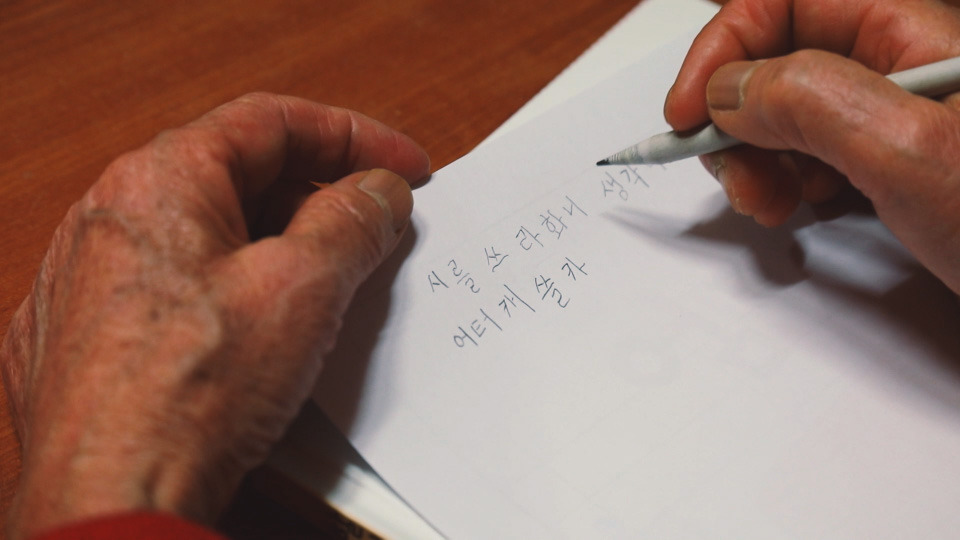 시를 쓰라화니 생각
어터캐 쓸카